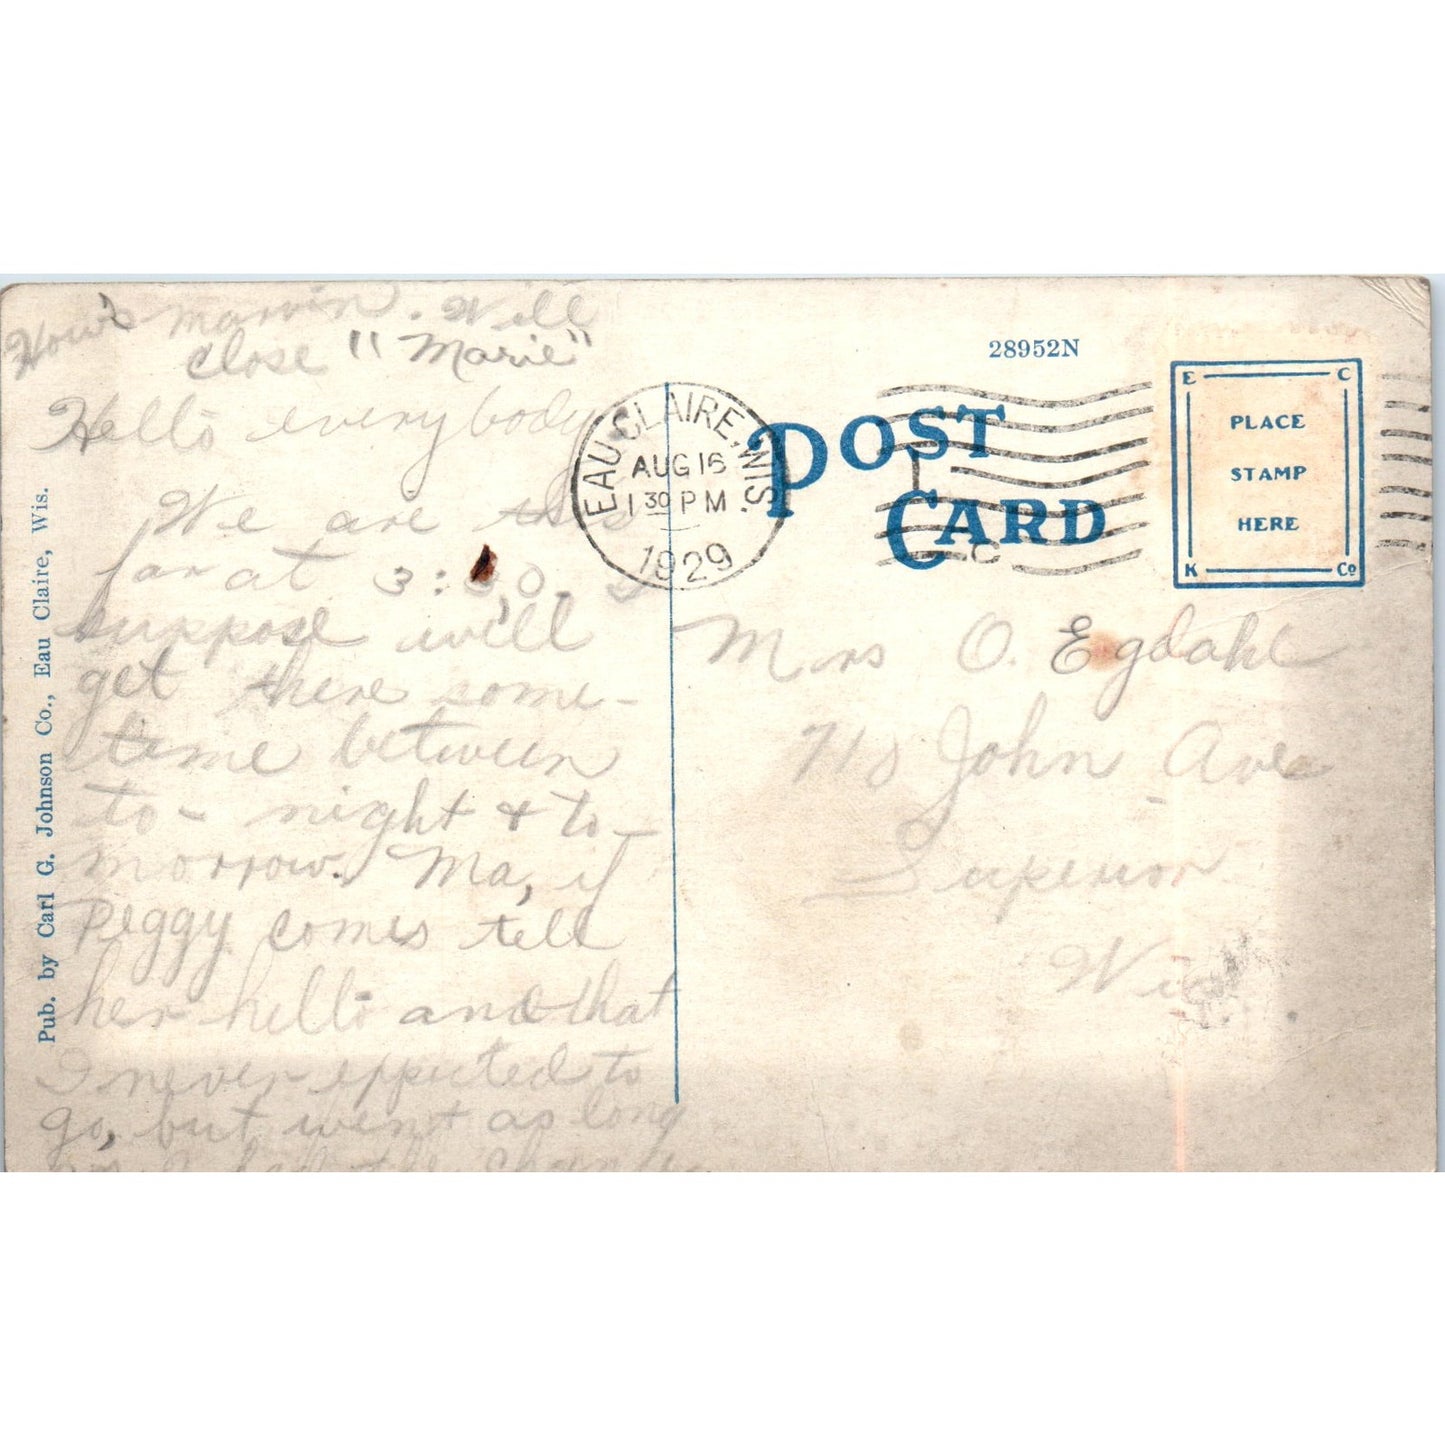 How's Marvin. Will
close "Marie"
Hello everybody
We are this
far at 3:30. I
suppose we'll
get there some-
time between
to-night & to-
morrow. Ma, if
Peggy comes tell
her hello and that
I never expected to
go, but went as long
as I had the
Pub. by Carl G. Johnson Co., Eau Claire, Wis.
28952N
EAU CLAIRE, WIS.
AUG 16
1 30 PM
1929
POST
CARD
E C
PLACE
STAMP
HERE
K Co
Mrs O. Egdahl
John Ave
Superior
Wis.